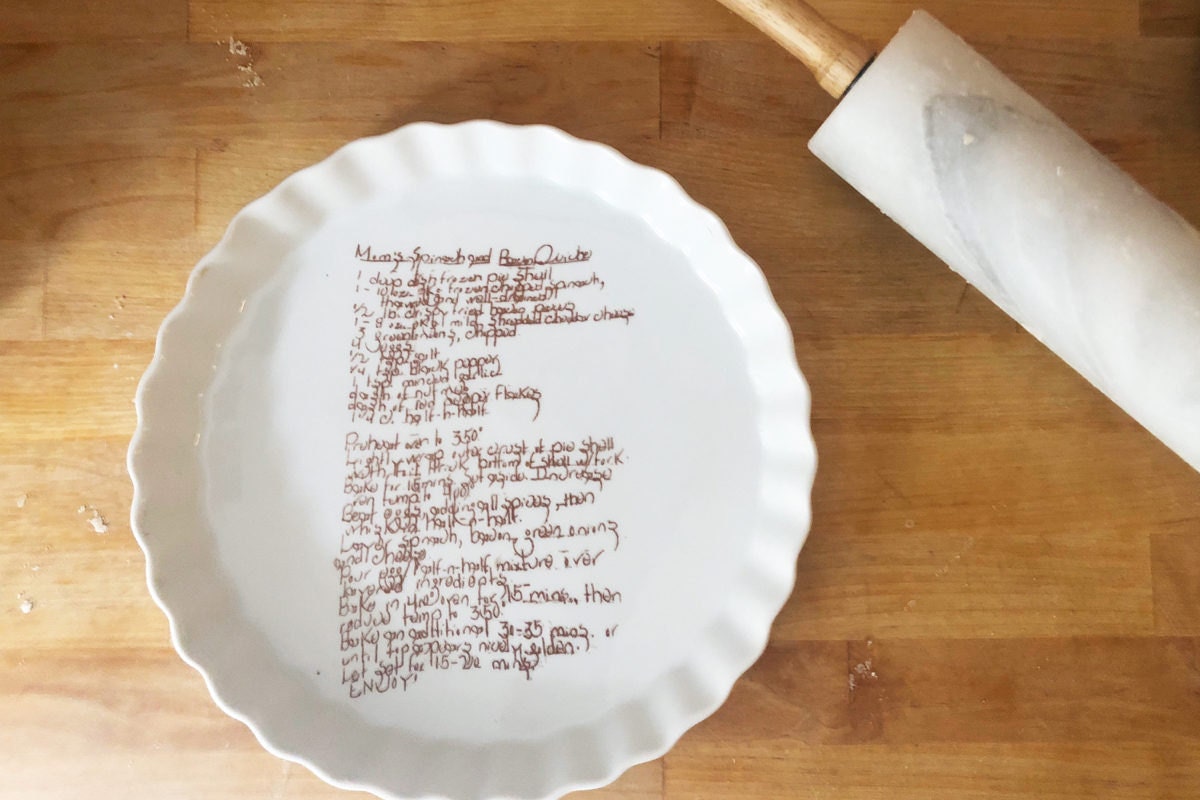 Mom's Spinach and Bacon Quiche
1 deep dish frozen pie shell
1 - 10 oz. frozen chopped spinach,
thawed and well-drained
1/2 lb. crispy fried bacon
1 - 8 oz. pkg. of mild shredded cheddar cheese
3 green onions, chopped
4 eggs
1/2 tsp. salt
1/4 tsp. black pepper
1 tsp. minced garlic
dash of nutmeg
dash of red pepper flakes
half-n-half
Preheat oven to 350°
wrap outer crust of pie shell
with foil. bottom of shell w/ fork
bake for 15 mins. Set aside. Increase
oven temp to 400°
Beat eggs, adding all spices, then
whisk half-n-half.
Layer spinach, bacon, green onions
and cheese
Pour egg/half-n-half mixture over
layered ingredients
Bake in 400° oven for 15 mins., then
reduce temp to 350°
bake an additional 30-35 mins. or
until top appears nicely golden.
Let set for 15-20 mins.
ENJOY!